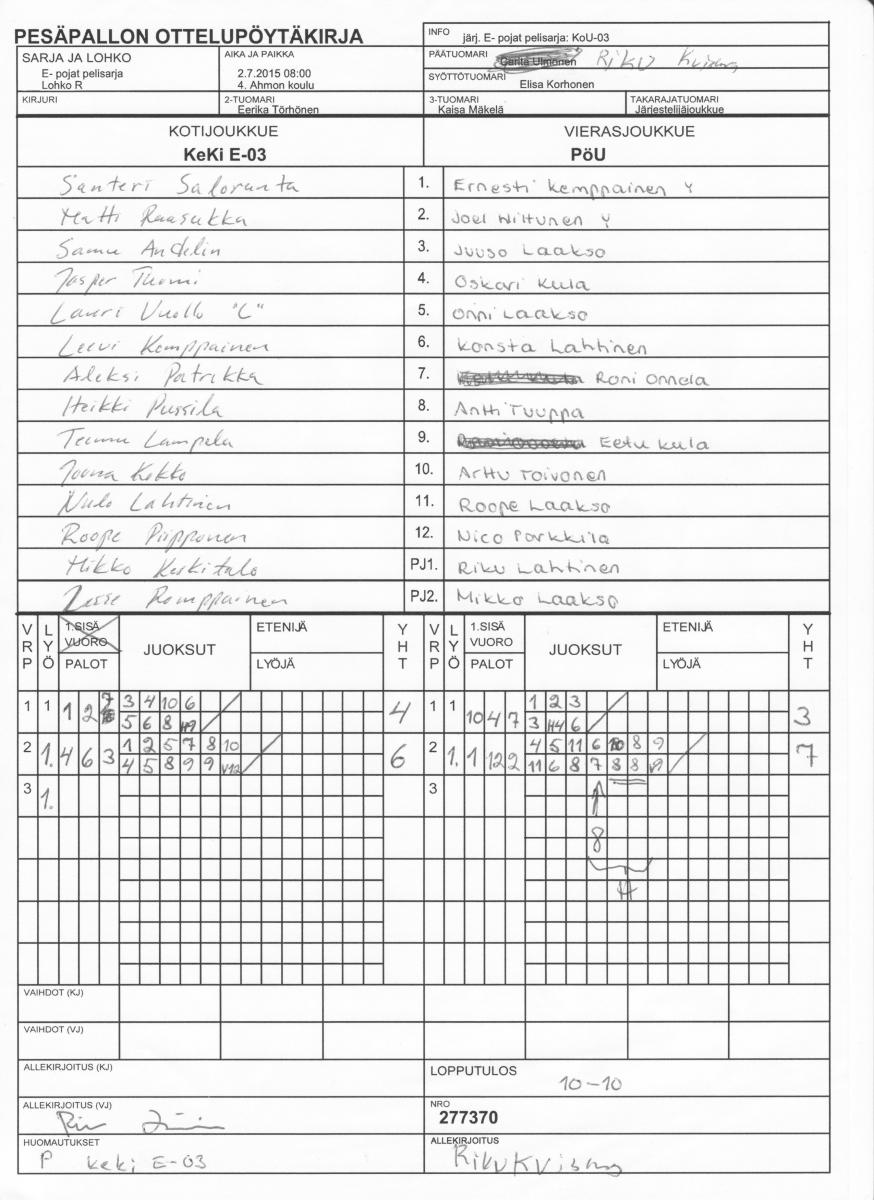 PESÄPALLON OTTELUPÖYTÄKIRJA
INFO järj. E- pojat pelisarja: KoU-03
SARJA JA LOHKO
E- pojat pelisarja
Lohko R
AIKA JA PAIKKA
2.7.2015 08:00
4. Ahmon koulu
PÄÄTUOMARI Riku
SYÖTTÖTUOMARI
Elisa Korhonen
KIRJURI
2-TUOMARI
Eerika Törhönen
3-TUOMARI
Kaisa Mäkelä
TAKARAJATUOMARI
Järjestelijäjoukkue
KOTIJOUKKUE
KeKi E-03
VIERASJOUKKUE
PöU
Santeri Saloranta 1. Ernesti Kemppainen Y
Matti Raasakka 2. Joel Hiltunen Y
Samu Andelin 3. Juuso Laakso
Jasper Tuomi 4. Oskari Kula
Lauri Vuollo "C" 5. Onni Laakso
Leevi Kemppainen 6. Konsta Lahtinen
Aleksi Patrikka 7. Roni Onnela
Heikki Pussila 8. Antti Tuuppa
Teemu Lampela 9. Eetu Kula
Joona Kokko 10. Arttu Toivonen
Lahtinen 11. Roope Laakso
Roope Piipponen 12. Nico Parkkila
Mikko Keskitalo PJ1. Riku Lahtinen
Romppainen PJ2. Mikko Laakso
VRP LYÖ 1.SISÄ VUORO PALOT JUOKSUT ETENIJÄ LYÖJÄ YHT VRP LYÖ 1.SISÄ VUORO PALOT JUOKSUT ETENIJÄ LYÖJÄ YHT
1 1 1 2 7 3 4 10 6 4 1 1 10 4 7 1 2 3 3
5 6 8 H9 3 H4 6
2 1. 4 6 3 1 2 5 7 8 10 6 2 1. 1 12 2 4 5 11 6 10 8 9 7
4 5 8 9 9 V12 11 6 8 7 8 8 V9
3 1. 3
8
H
VAIHDOT (KJ)
VAIHDOT (VJ)
ALLEKIRJOITUS (KJ)
LOPPUTULOS
10-10
ALLEKIRJOITUS (VJ)
NRO
277370
HUOMAUTUKSET
P Keki E-03
ALLEKIRJOITUS
Riku